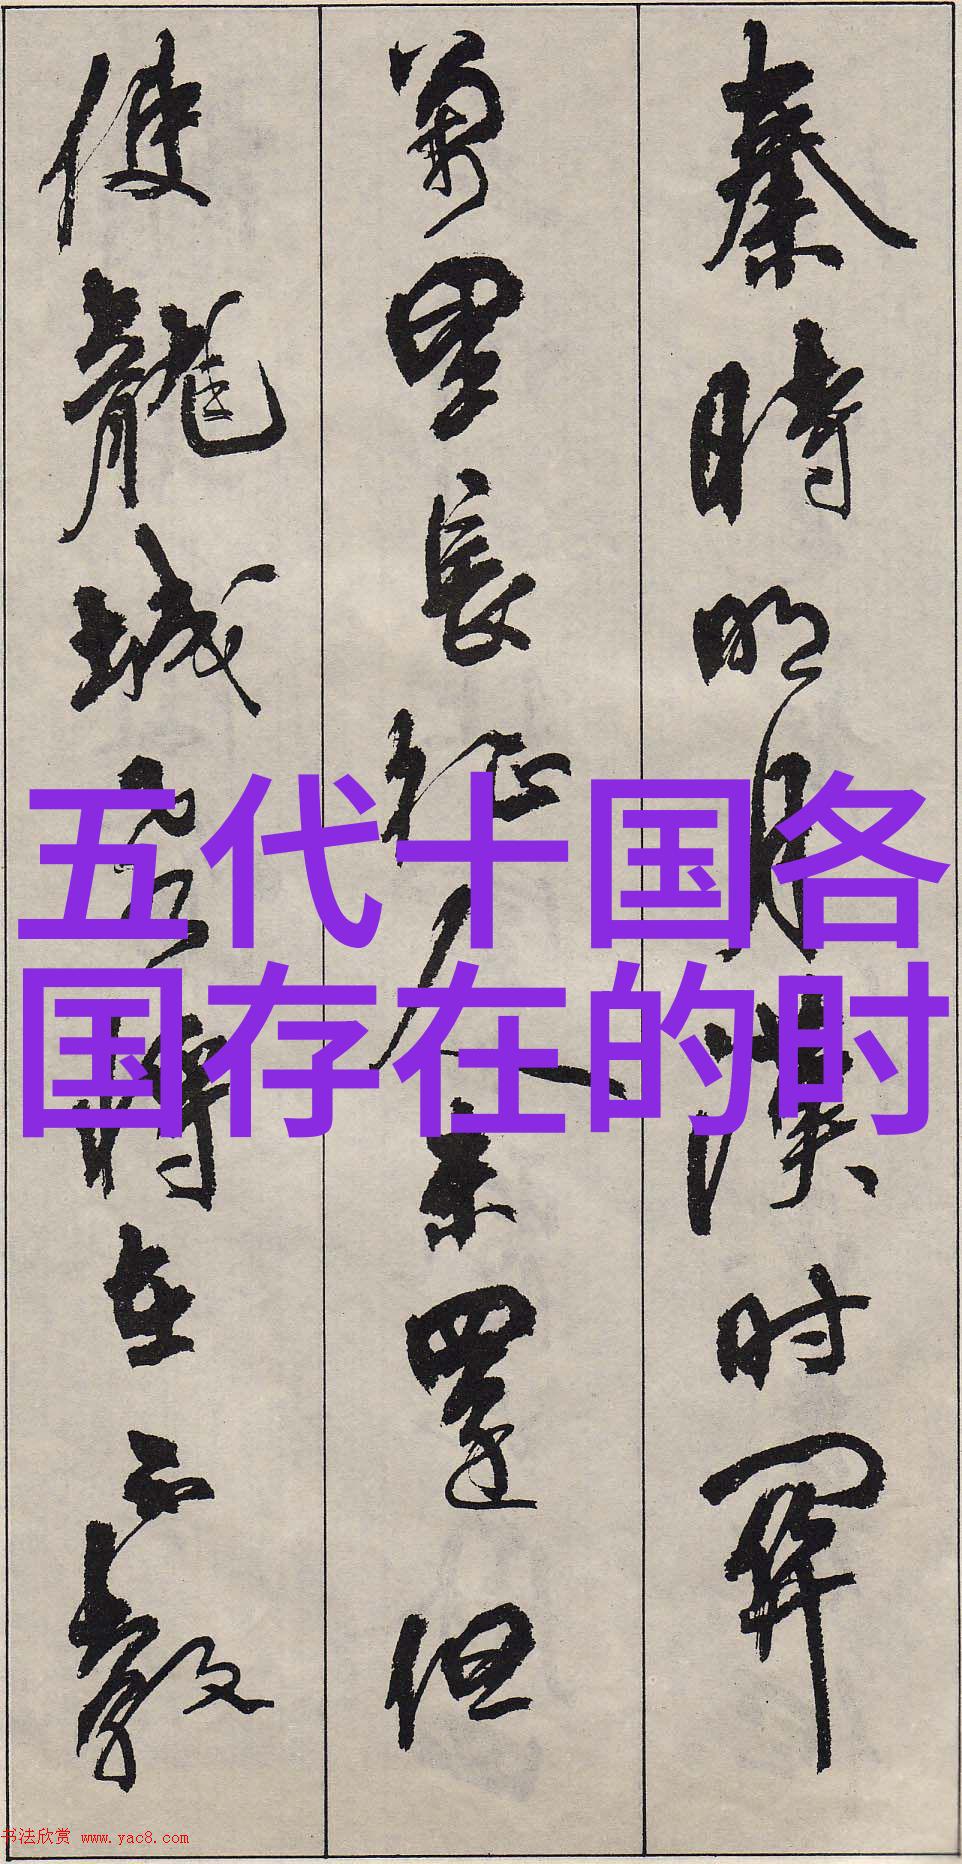 秦時明月漢时関
萬里長征人未還但
使龍城飛将在不教
五代十国各
国存在的时
书法欣赏 www.yac8.com